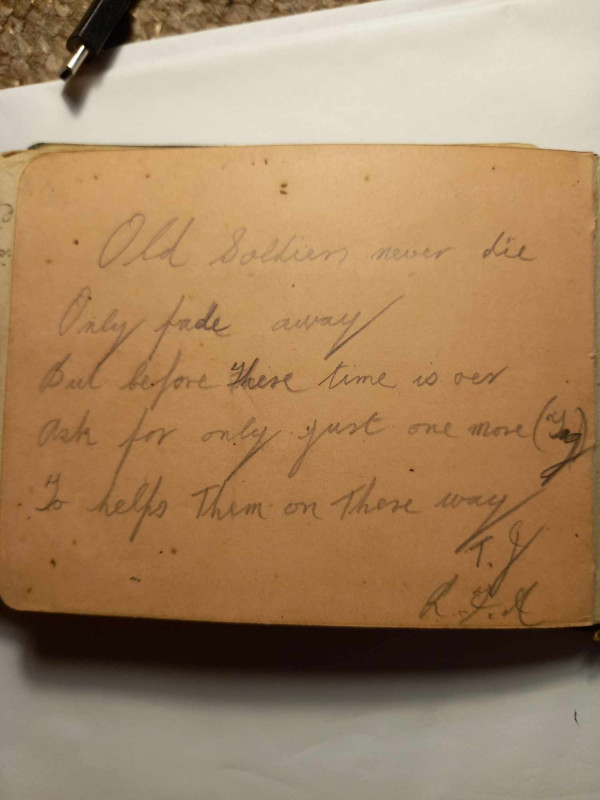 Old Soldiers never die
Only fade away
But before there time is oer
Ask for only just one more
To helps Them on There way
T. J
R. F. A